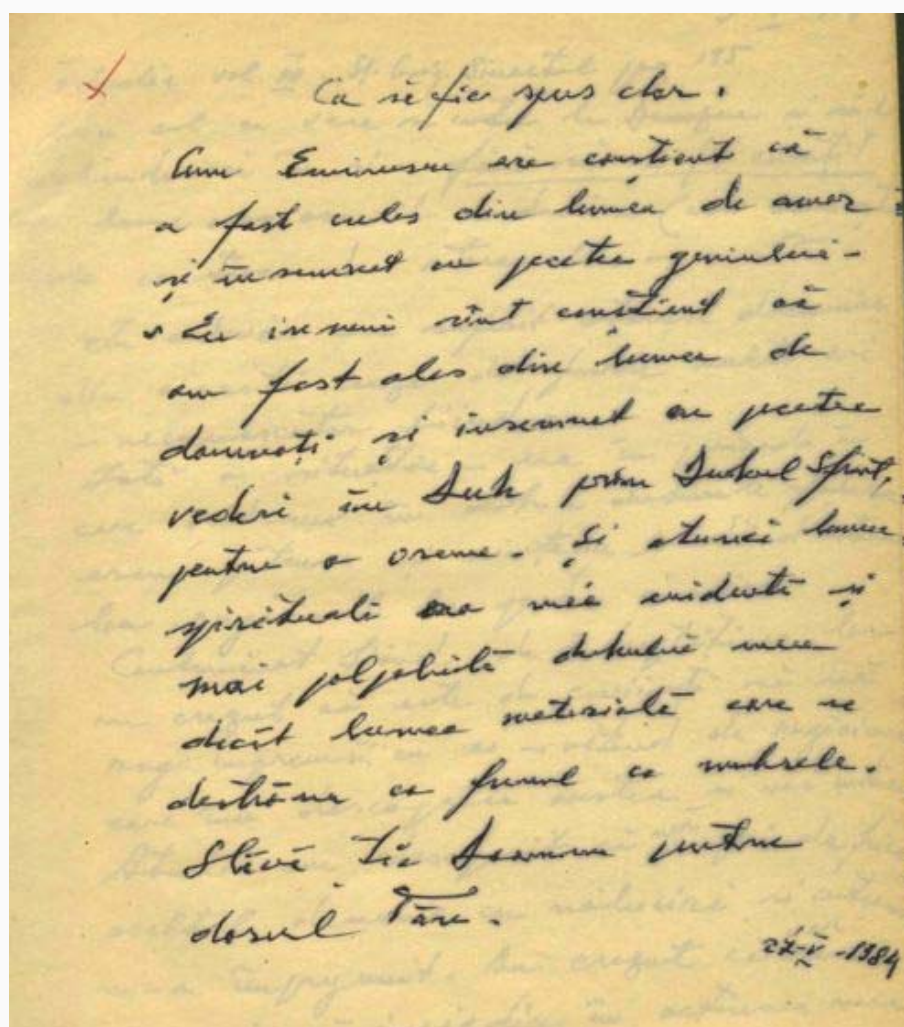 Ca să fie spus clar.
Cum Eminescu era conștient că
a fost cules din lumea de amor
și însemnat cu pecetea geniului -
Eu însumi sînt conștient că
am fost ales din lumea de
damnați și însemnat cu pecetea
vederi în Duh prin Duhul Sfînt,
pentru o vreme. Și atunci lumea
spirituală era mai evidentă și
mai palpabilă duhului meu
decît lumea materială care se
destrăma ca fumul ca umbrele.
Slavă Ție Doamne pentru
darul Tău.
27-V-1984